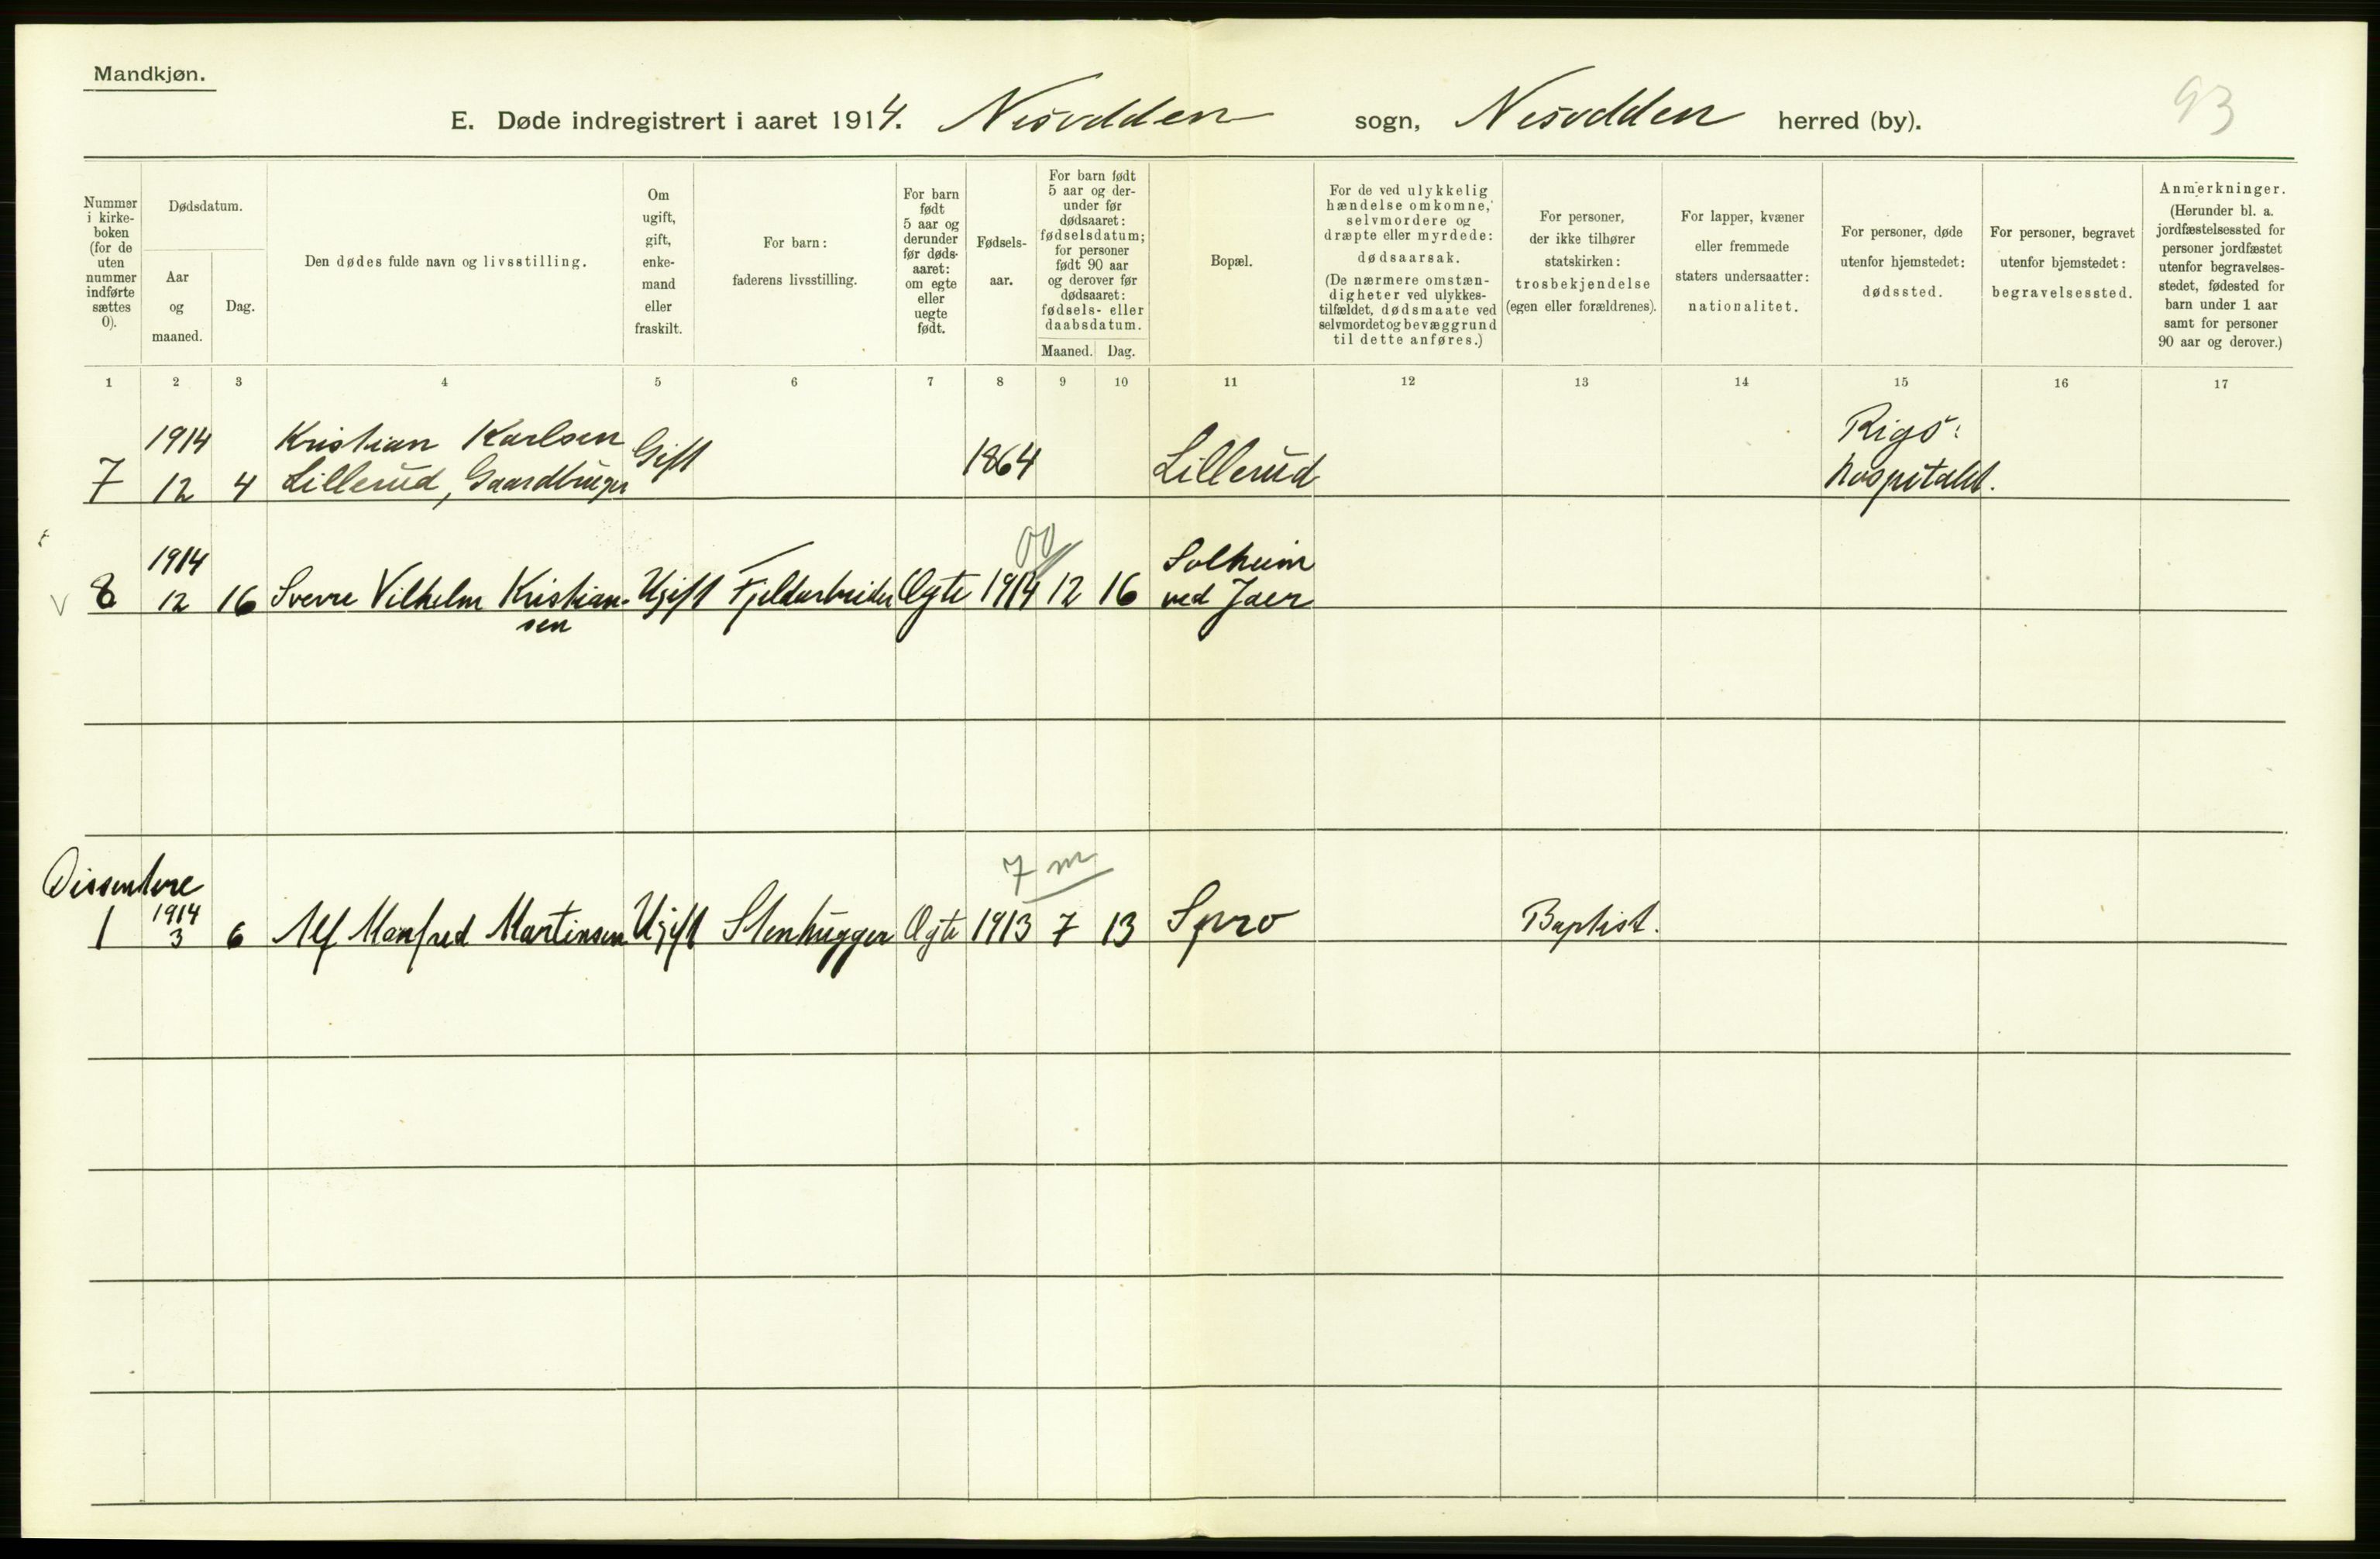 Mandkjøn.
93
E. Døde indregistrert i aaret 1914. Nesodden sogn, Nesodden herred (by).
Nummer
i kirke-
boken
(for de
uten
nummer
indførte
sættes
0).
Dødsdatum.
Aar
og
maaned.
Dag.
Den dødes fulde navn og livsstilling.
Om
ugift,
gift,
enke-
mand
eller
fraskilt.
For barn:
faderens livsstilling.
For barn
født
5 aar og
derunder
før døds-
aaret:
om egte
eller
uegte
født.
Fødsels-
aar.
For barn født
5 aar og der-
under før
dødsaaret:
fødselsdatum;
for personer
født 90 aar
og derover før
dødsaaret:
fødsels- eller
daabsdatum.
Maaned. Dag.
Bopæl.
For de ved ulykkelig
hændelse omkomne,
selvmordere og
dræpte eller myrdede:
dødsaarsak.
(De nærmere omstæn-
digheter ved ulykkes-
tilfældet, dødsmaate ved
selvmordet og bevæggrund
til dette anføres.)
For personer,
der ikke tilhører
statskirken:
trosbekjendelse
(egen eller forældrenes).
For lapper, kvæner
eller fremmede
staters undersaatter:
nationalitet.
For personer, døde
utenfor hjemstedet:
dødssted.
For personer, begravet
utenfor bjemstedet:
begravelsessted.
Anmerkninger.
(Herunder bl. a.
jordfæstelsessted for
personer jordfæstet
utenfor begravelses-
stedet, fødested for
barn under 1 aar
samt for personer
90 aar og derover.)
1 2 3 4 5 6 7 8 9 10 11 12 13 14 15 16 17
1914 Kristian Karlsen Rigs-
7 12 4 Lillerud, Gaardbruger Gift 1864 Lillerud hospitalet.
00
1914 Solheim
8 12 16 Sverre Vilhelm Kristian- Ugift Fjeldarbeider Ægte 1914 12 16 ved Jaer
sen
Dissentere
7 m
1914
1 3 6 Alf Manfred Martinsen Ugift Stenhugger Ægte 1913 7 13 Spro Baptist.